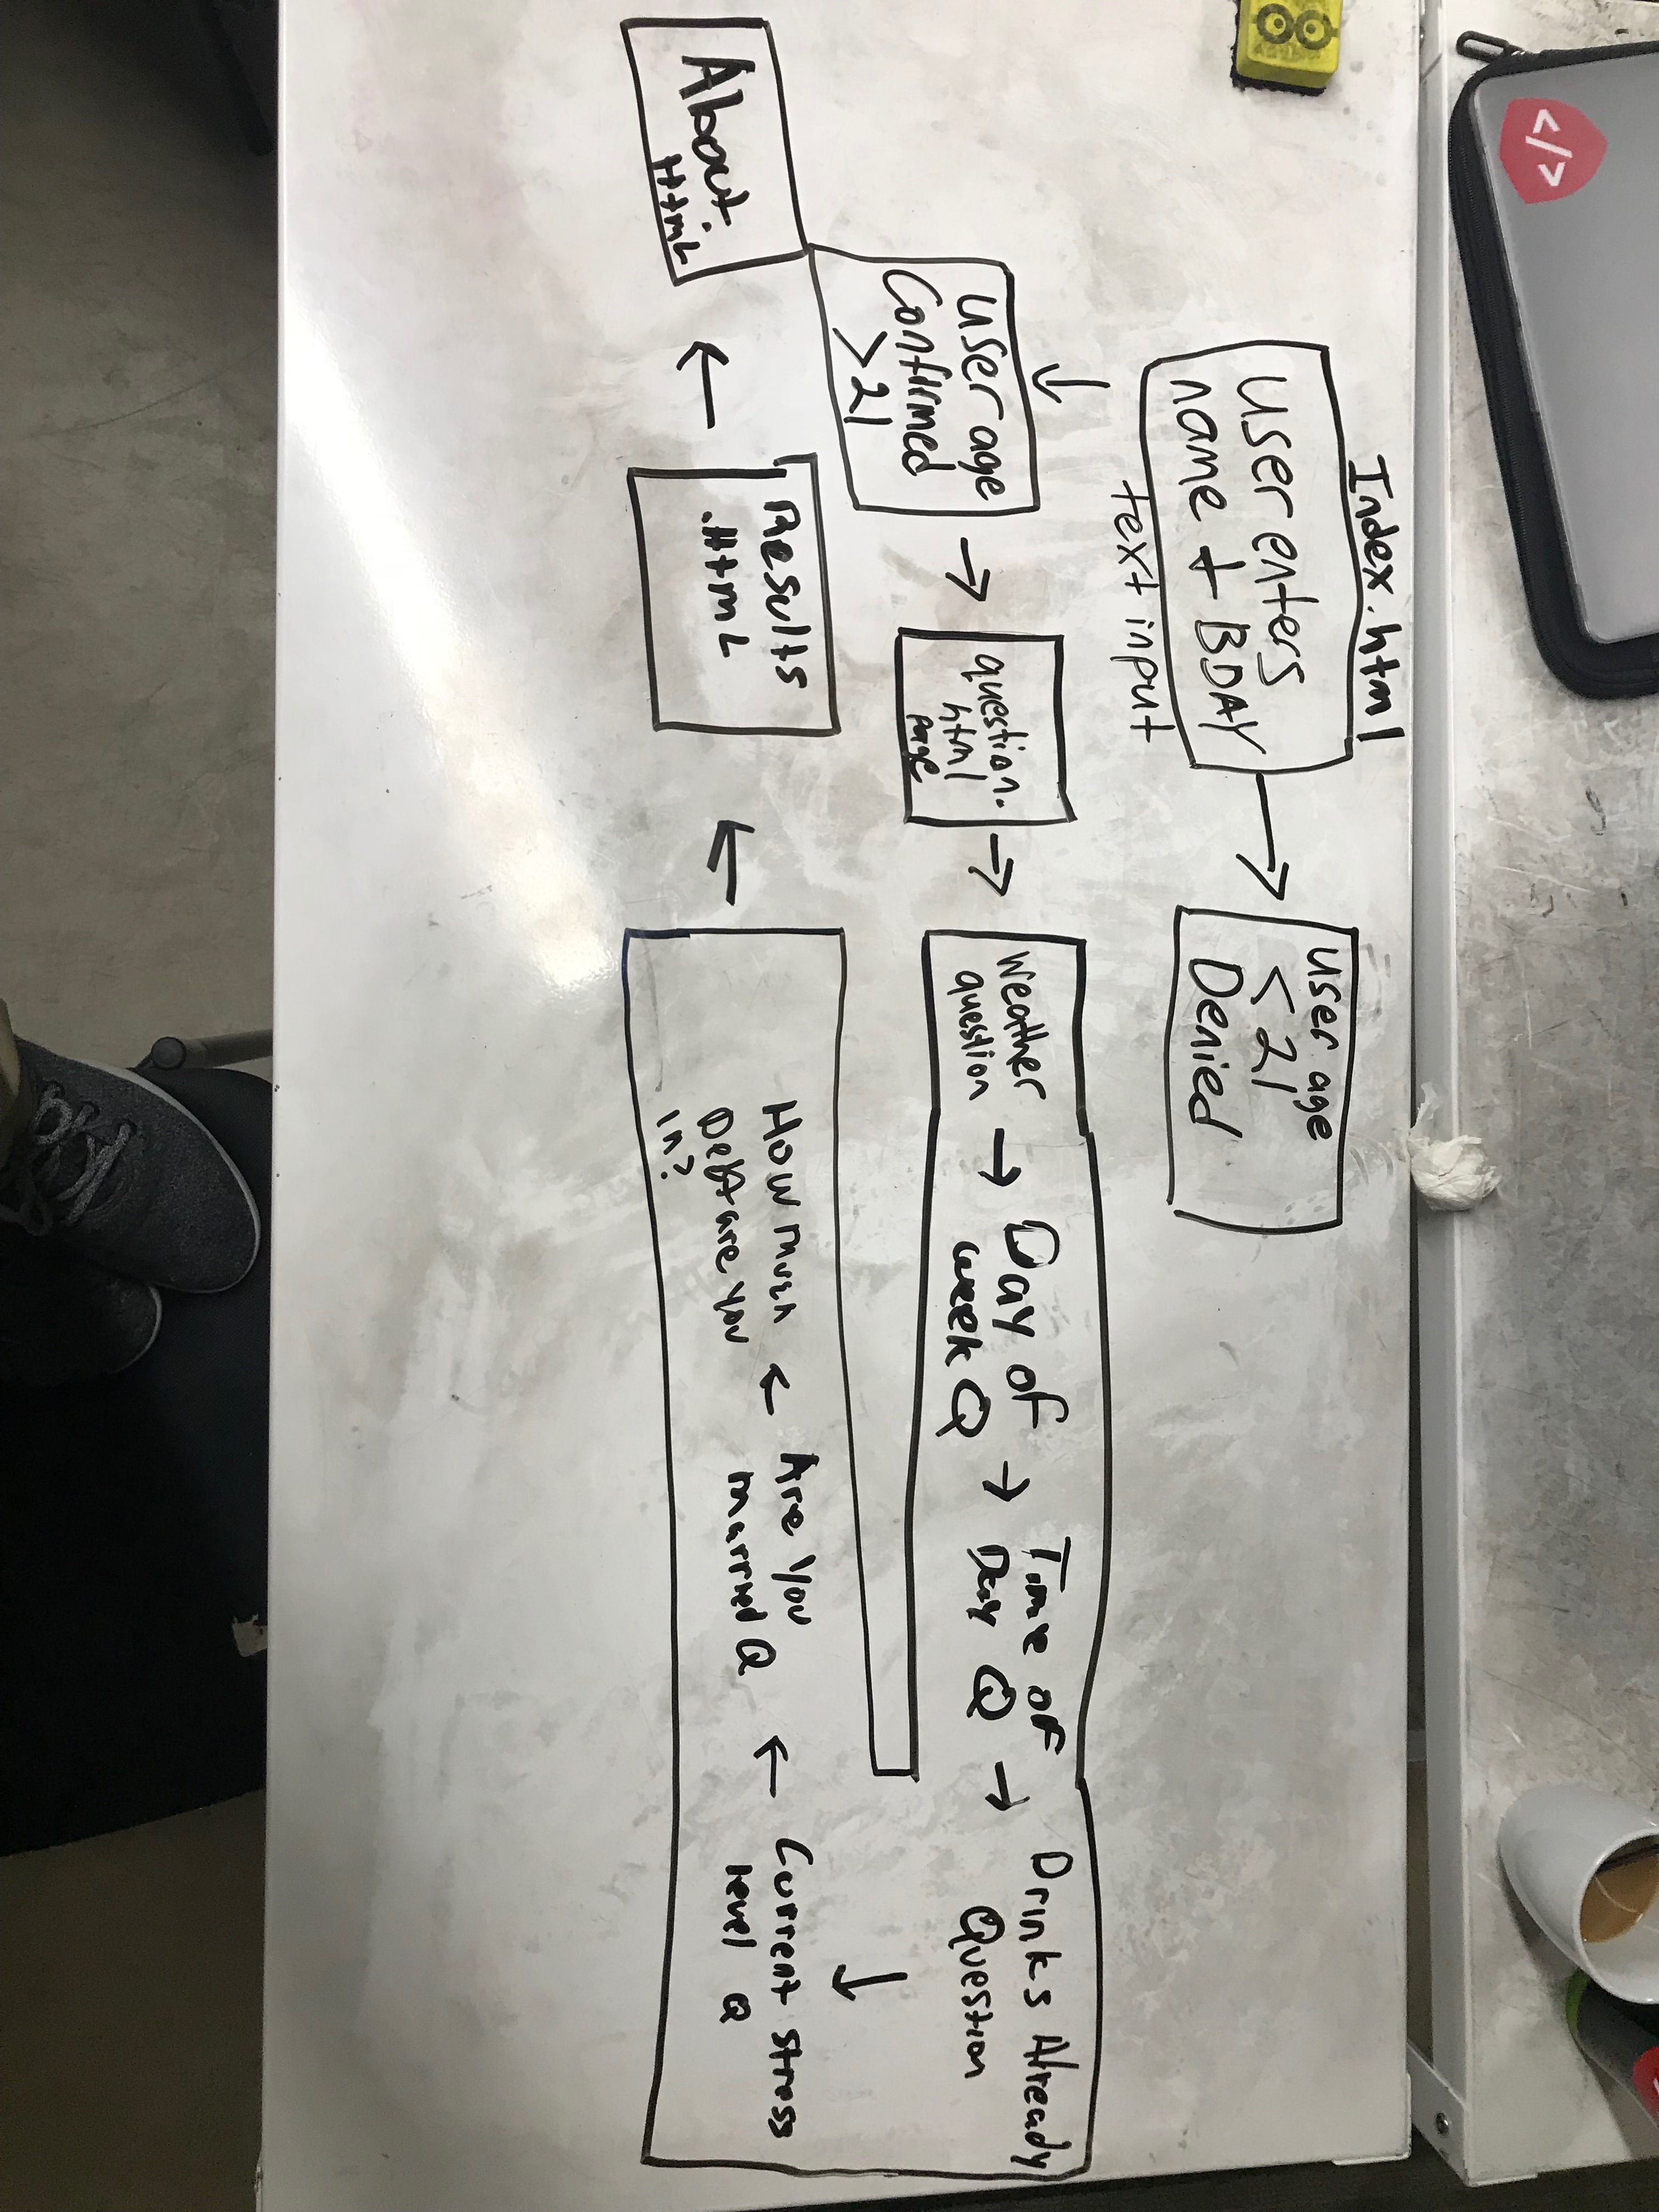 Index.html
User enters
name + BDAY
text input
User age
< 21
Denied
User age
Confirmed
>21
question.
html
page
Weather
question
Day of
week Q
Time of
Day Q
Drinks Already
Question
Current stress
level Q
Are you
married Q
How much
Debt are you
in?
Results
.Html
About.
Html
</>